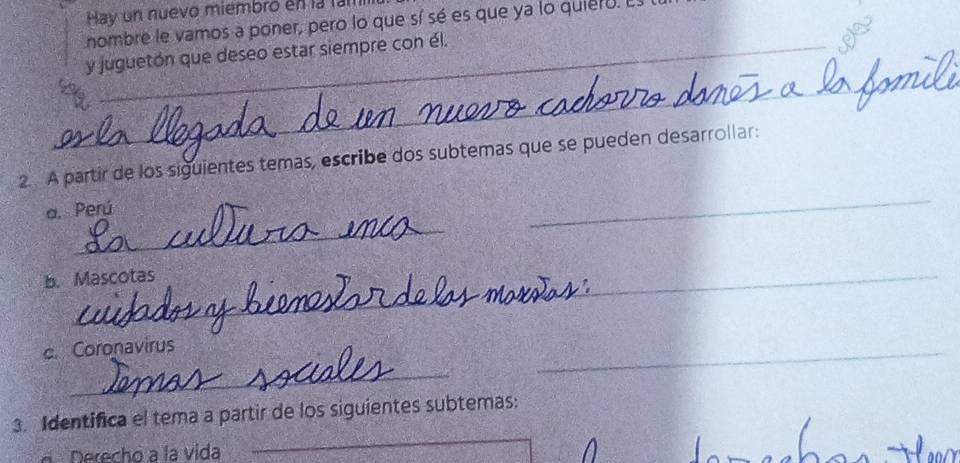 Hay un nuevo miembro en la
nombre le vamos a poner, pero lo que sí sé es que ya lo quiero. Es
y juguetón que deseo estar siempre con él.
es la llegada de un nuevo cachorro danés a la famili
2. A partir de los siguientes temas, escribe dos subtemas que se pueden desarrollar:
a. Perú
La cultura inca
b. Mascotas
cuidados y bienestar de las mascotas.
c. Coronavirus
Temas sociales
3. Identifica el tema a partir de los siguientes subtemas:
a. Derecho a la vida